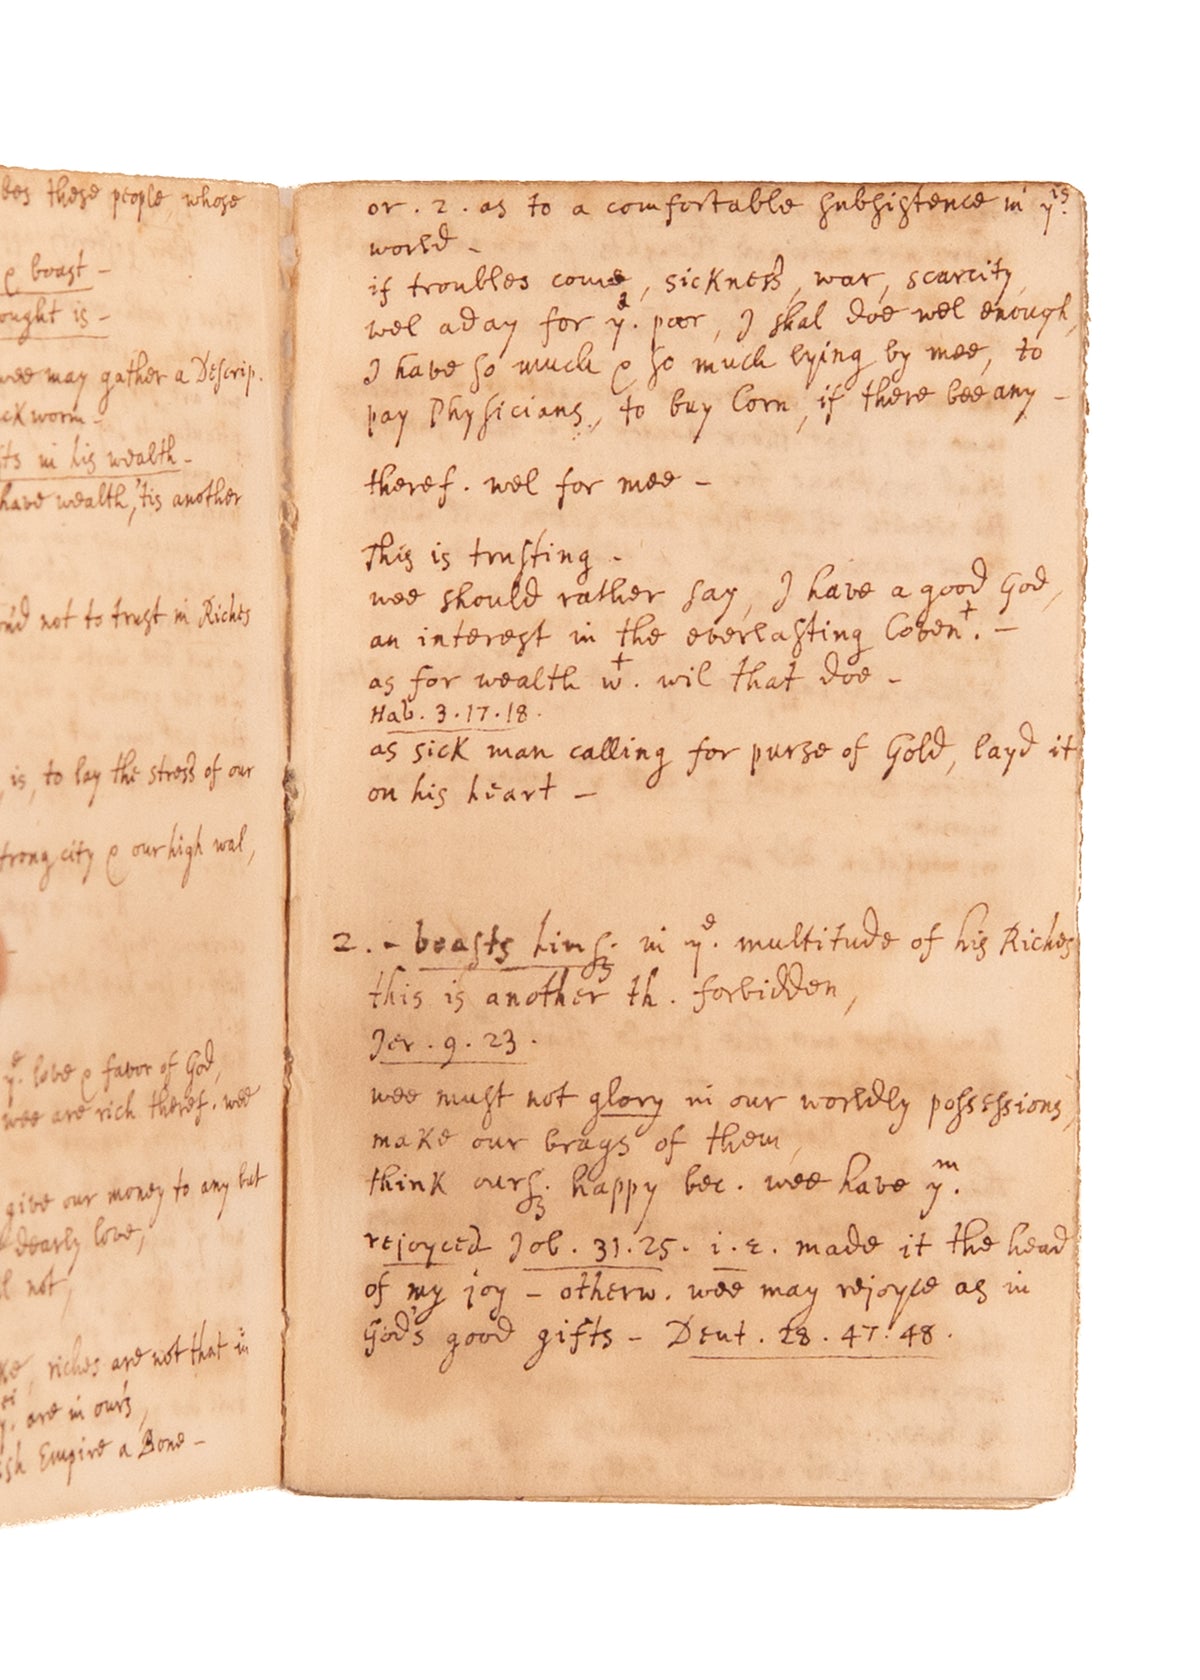 bes these people, whose
& boast -
ought is -
wee may gather a Descrip.
ck worm -
ts in his wealth -
have wealth, 'tis another
not to trust in Riches
is, to lay the stress of our
trong city & our high wal,
yᵉ. love & favor of God,
wee are rich theref. wee
give our money to any but
dearly love,
not,
riches are not that in
are in ours,
ish Empire a Bone -
or . 2 . as to a comfortable subsistence in yⁱˢ.
world -
if troubles come, sickness, war, scarcity,
wel aday for yᵉ. poor, I shal doe wel enough,
I have so much & so much lying by mee, to
pay Physicians, to buy Corn, if there bee any -
theref. wel for mee -
This is trusting -
wee should rather say, I have a good God,
an interest in the everlasting Covenᵗ. -
as for wealth wᵗ. wil that doe -
Hab. 3.17.18.
as sick man calling for purse of Gold, layd it
on his heart -
2. - boasts hims. in yᵉ. multitude of his Riches
this is another th. forbidden,
Jer. 9. 23.
wee must not glory in our worldly possessions,
make our brags of them,
think ours. happy bec. wee have yᵐ.
rejoyced Job. 31.25. i.e. made it the head
of my joy - otherw. wee may rejoyce as in
God's good gifts - Deut. 28. 47. 48.